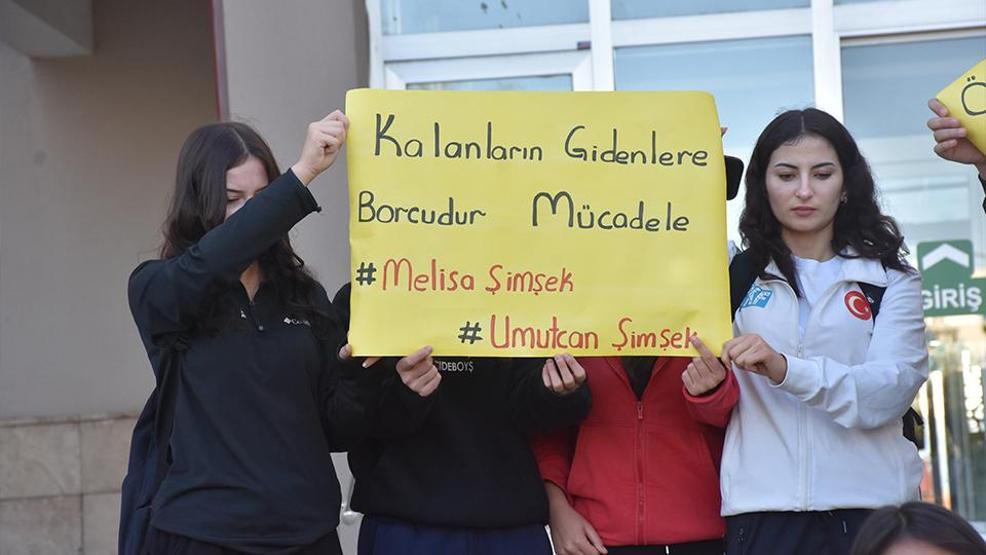 Kalanların Gidenlere
Borcudur Mücadele
#Melisa Şimşek
#Umutcan Şimşek
Ö
GİRİŞ
CIDEBOYŞ